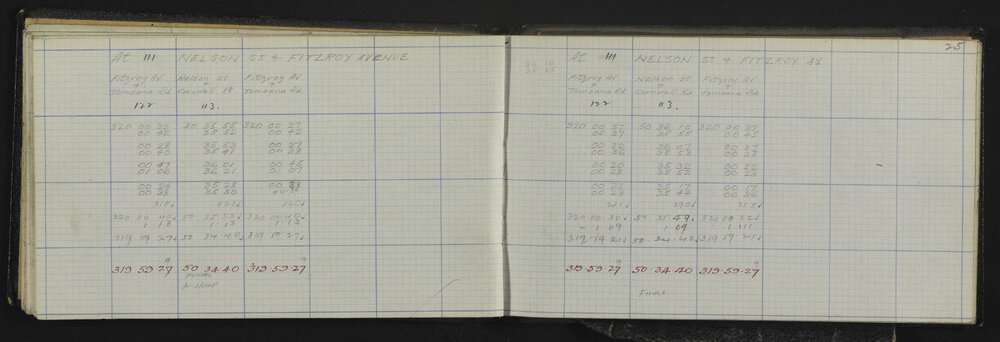 At 111 NELSON ST & FITZROY AVENUE
Fitzroy Av Nelson St Fitzroy Av
& & &
Tomoana Rd Cornwall Rd Tomoana Rd
122 113.
320 00 50 35 55 320 00 37
00 42 35 52 00 42
00 28 35 53 00 27
35 47 00 38
00 47 36 01 00 45
01 06 36 21 01 07
00 24 35 28
00 38 35 50
320 00 40 50 35 53 320 00 40
1 13 1 13 1 13
319 59 27 50 34 40 319 59 27
319 59 27 50 34 40 319 59 27
FINAL
25
At 111 NELSON ST & FITZROY AV
Fitzroy Av Nelson St Fitzroy Av
& & &
Tomoana Rd Cornwall Rd Tomoana Rd
122 113.
320 00 37 50 36 10 320 00 37
00 37 35 55 00 45
00 32 36 07 00 37
00 36 35 53 00 33
00 20 35 32 00 22
00 28 35 52 00 23
35 17 00 17
35 44 00 36
320 00 30 50 35 49 320 00 32
1 09 1 09 1 11
319 59 21 50 34 40 319 59 21
319 59 27 50 34 40 319 59 27
Final